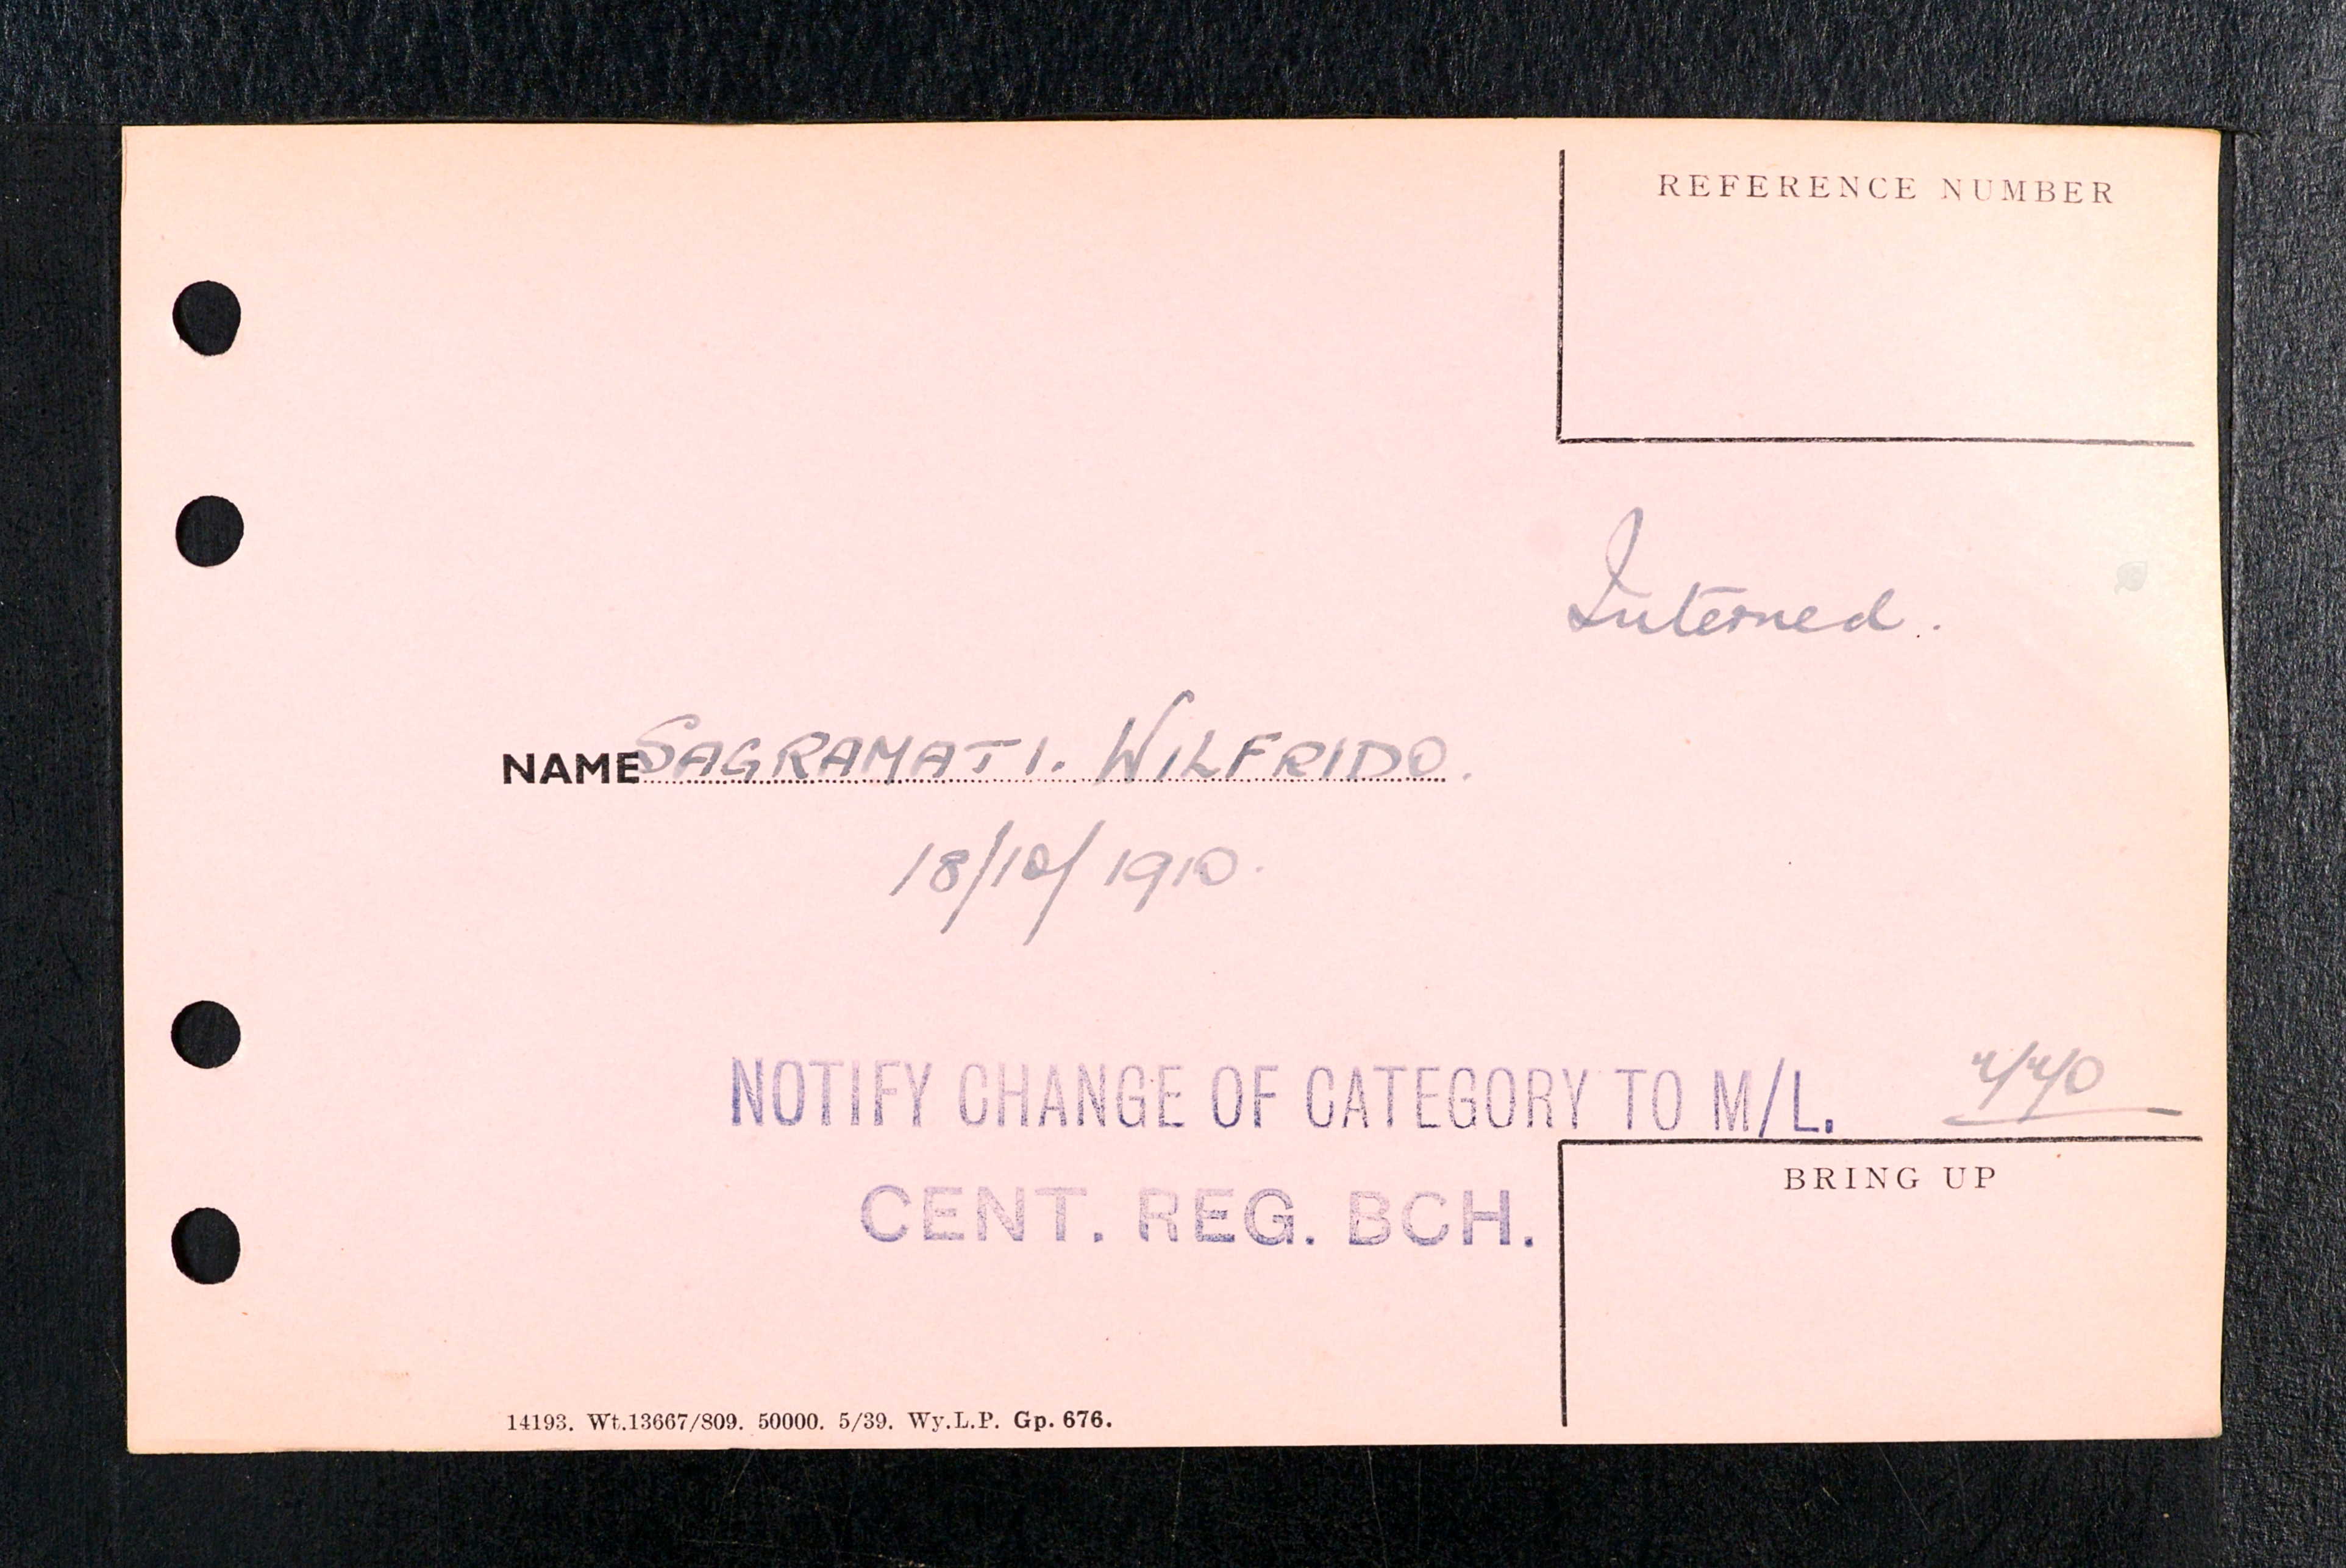 REFERENCE NUMBER
Interned.
NAME SAGRAMATI. WILFRIDO.
18/10/1910.
NOTIFY CHANGE OF CATEGORY TO M/L.
CENT. REG. BCH.
BRING UP
14193. Wt.13667/809. 50000. 5/39. Wy.L.P. Gp. 676.